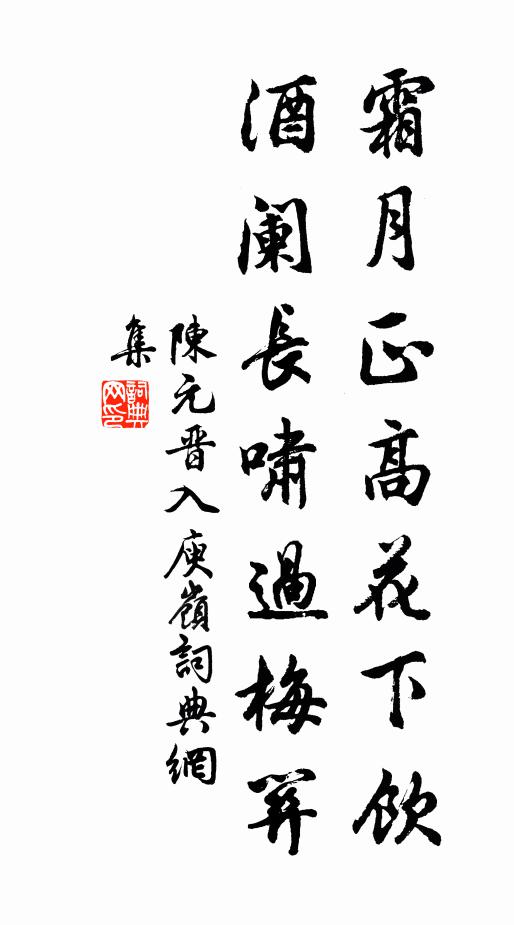 霜月正高花下飲
酒阑長嘯過梅關
陳元晋入庾嶺詞典網
集
詞典网印